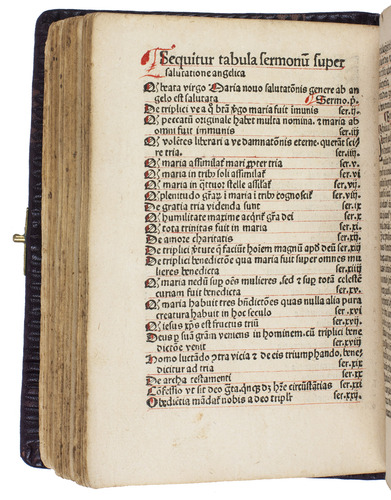 Sequitur tabula sermonū super
salutatione angelica
Q beata virgo Maria nouo salutatōnis genere ab an
gelo est salutata Sermo.p.
De triplici ve a q̄ btā v̄go maria fuit īmunis ser.ij.
Q peccatū originale habet multa nomina. & maria ab
omni fuit immunis ser.iij.
Q volētes liberari a ve damnatōnis eterne. querāt sci
re tria. ser.iiij.
Q maria assimilat mari ꝓpter tria ser.v.
Q maria in trib soli assimilat ser.vi
Q maria in q̄ttuor stelle assilat ser.vij.
Q plenitudo gr̄aꝝ ī maria ī trib cognoscit ser.viij.
De gratia tria videnda sunt ser.ix
Q humilitate maxime acq̄rit gr̄a dei ser.x
Q tota trinitas fuit in maria ser.xi.
De amore charitatis ser.xij.
De triplici v̄tute q̄ faciūt hoiem magnū apd deū ser.xiij
De triplici benedictōe qua maria fuit super omnes mu
lieres benedicta ser.xiiij
Q maria nedū suꝑ oēs mulieres. sed & suꝑ totā celestē
curiam fuit benedicta ser.xv.
Q maria habuit tres bn̄dictōes quas nulla alia pura
creatura habuit in hoc seculo ser.xvi
Q iesus xp̄s est fructus triū ser.xvij.
Deus ꝑ suā grām veniens in hominem. cū triplici bene
dictōe venit ser.xviij
Homo luctādo ꝯtra vicia & de eis triumphando. bene
dicitur ad tria ser.xix
De archa testamenti ser.xx
Cōfessio vt sit deo gr̄ta. q̄nqꝫ dꝫ hr̄e circūstātias ser.xxi
Obediētia mādat nobis a deo triplr ser.xxij.